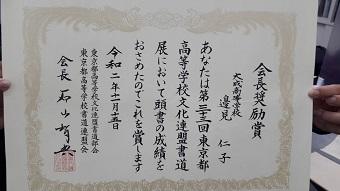 会長奨励賞
大成高等学校
邉見 仁子
あなたは第三十三回東京都
高等学校文化連盟書道
展において頭書の成績を
おさめたのでこれを賞します
令和二年十一月十五日
東京都高等学校文化連盟書道部会
東京都高等学校書道連盟会
会長